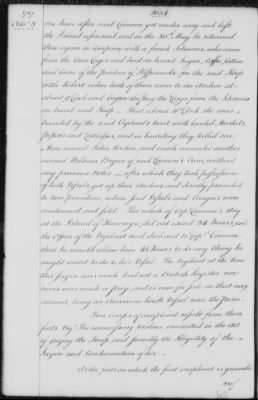 1797
1684
One hour after said Connow got under way and left
the Island aforesaid and on the 30th May he returned
there again in Company with a french Schooner, who came
from the Aux Cayes and had on board Sugar, Coffee, Cotton
and Cocoa of the produce of Hispaniola, for the said Sloop
with Robert when both of them came to an Anchor at
about o'Clock and began the Cargo from the Schooner
on board said Sloop. That about 11 o'Clock she was
boarded by the said Captain's boat with loaded Muskets,
Pistols and Cutlasses, and in boarding they killed one
Man named John and much wounded another
named William Bryan of said Crew, without
any previous Notice — after which they took possession
of both Vessels got up their Anchors and directly proceeded
to New providence, where said Vessels and Cargoes were
condemned and sold. The whole of Captn. stay
at the Island of Heneauga did not exceed 36 Hours, and
the Officer of the and declared to Captn.
that he would allow him 48 hours to do any thing he
might want to do to his Vessel. The at the time
this seizure was made had not a British Register nor
never was much a prize, and is now for sale in that very
being an American built Vessel since the Peace.
Two Causes of complaint result from these
facts Viz. The unnecessary violence committed in the act
of seizing the Sloop, and secondly the Illegality of the
Seizure and Condemnation of her —
As the facts on which the first complaint is grounded